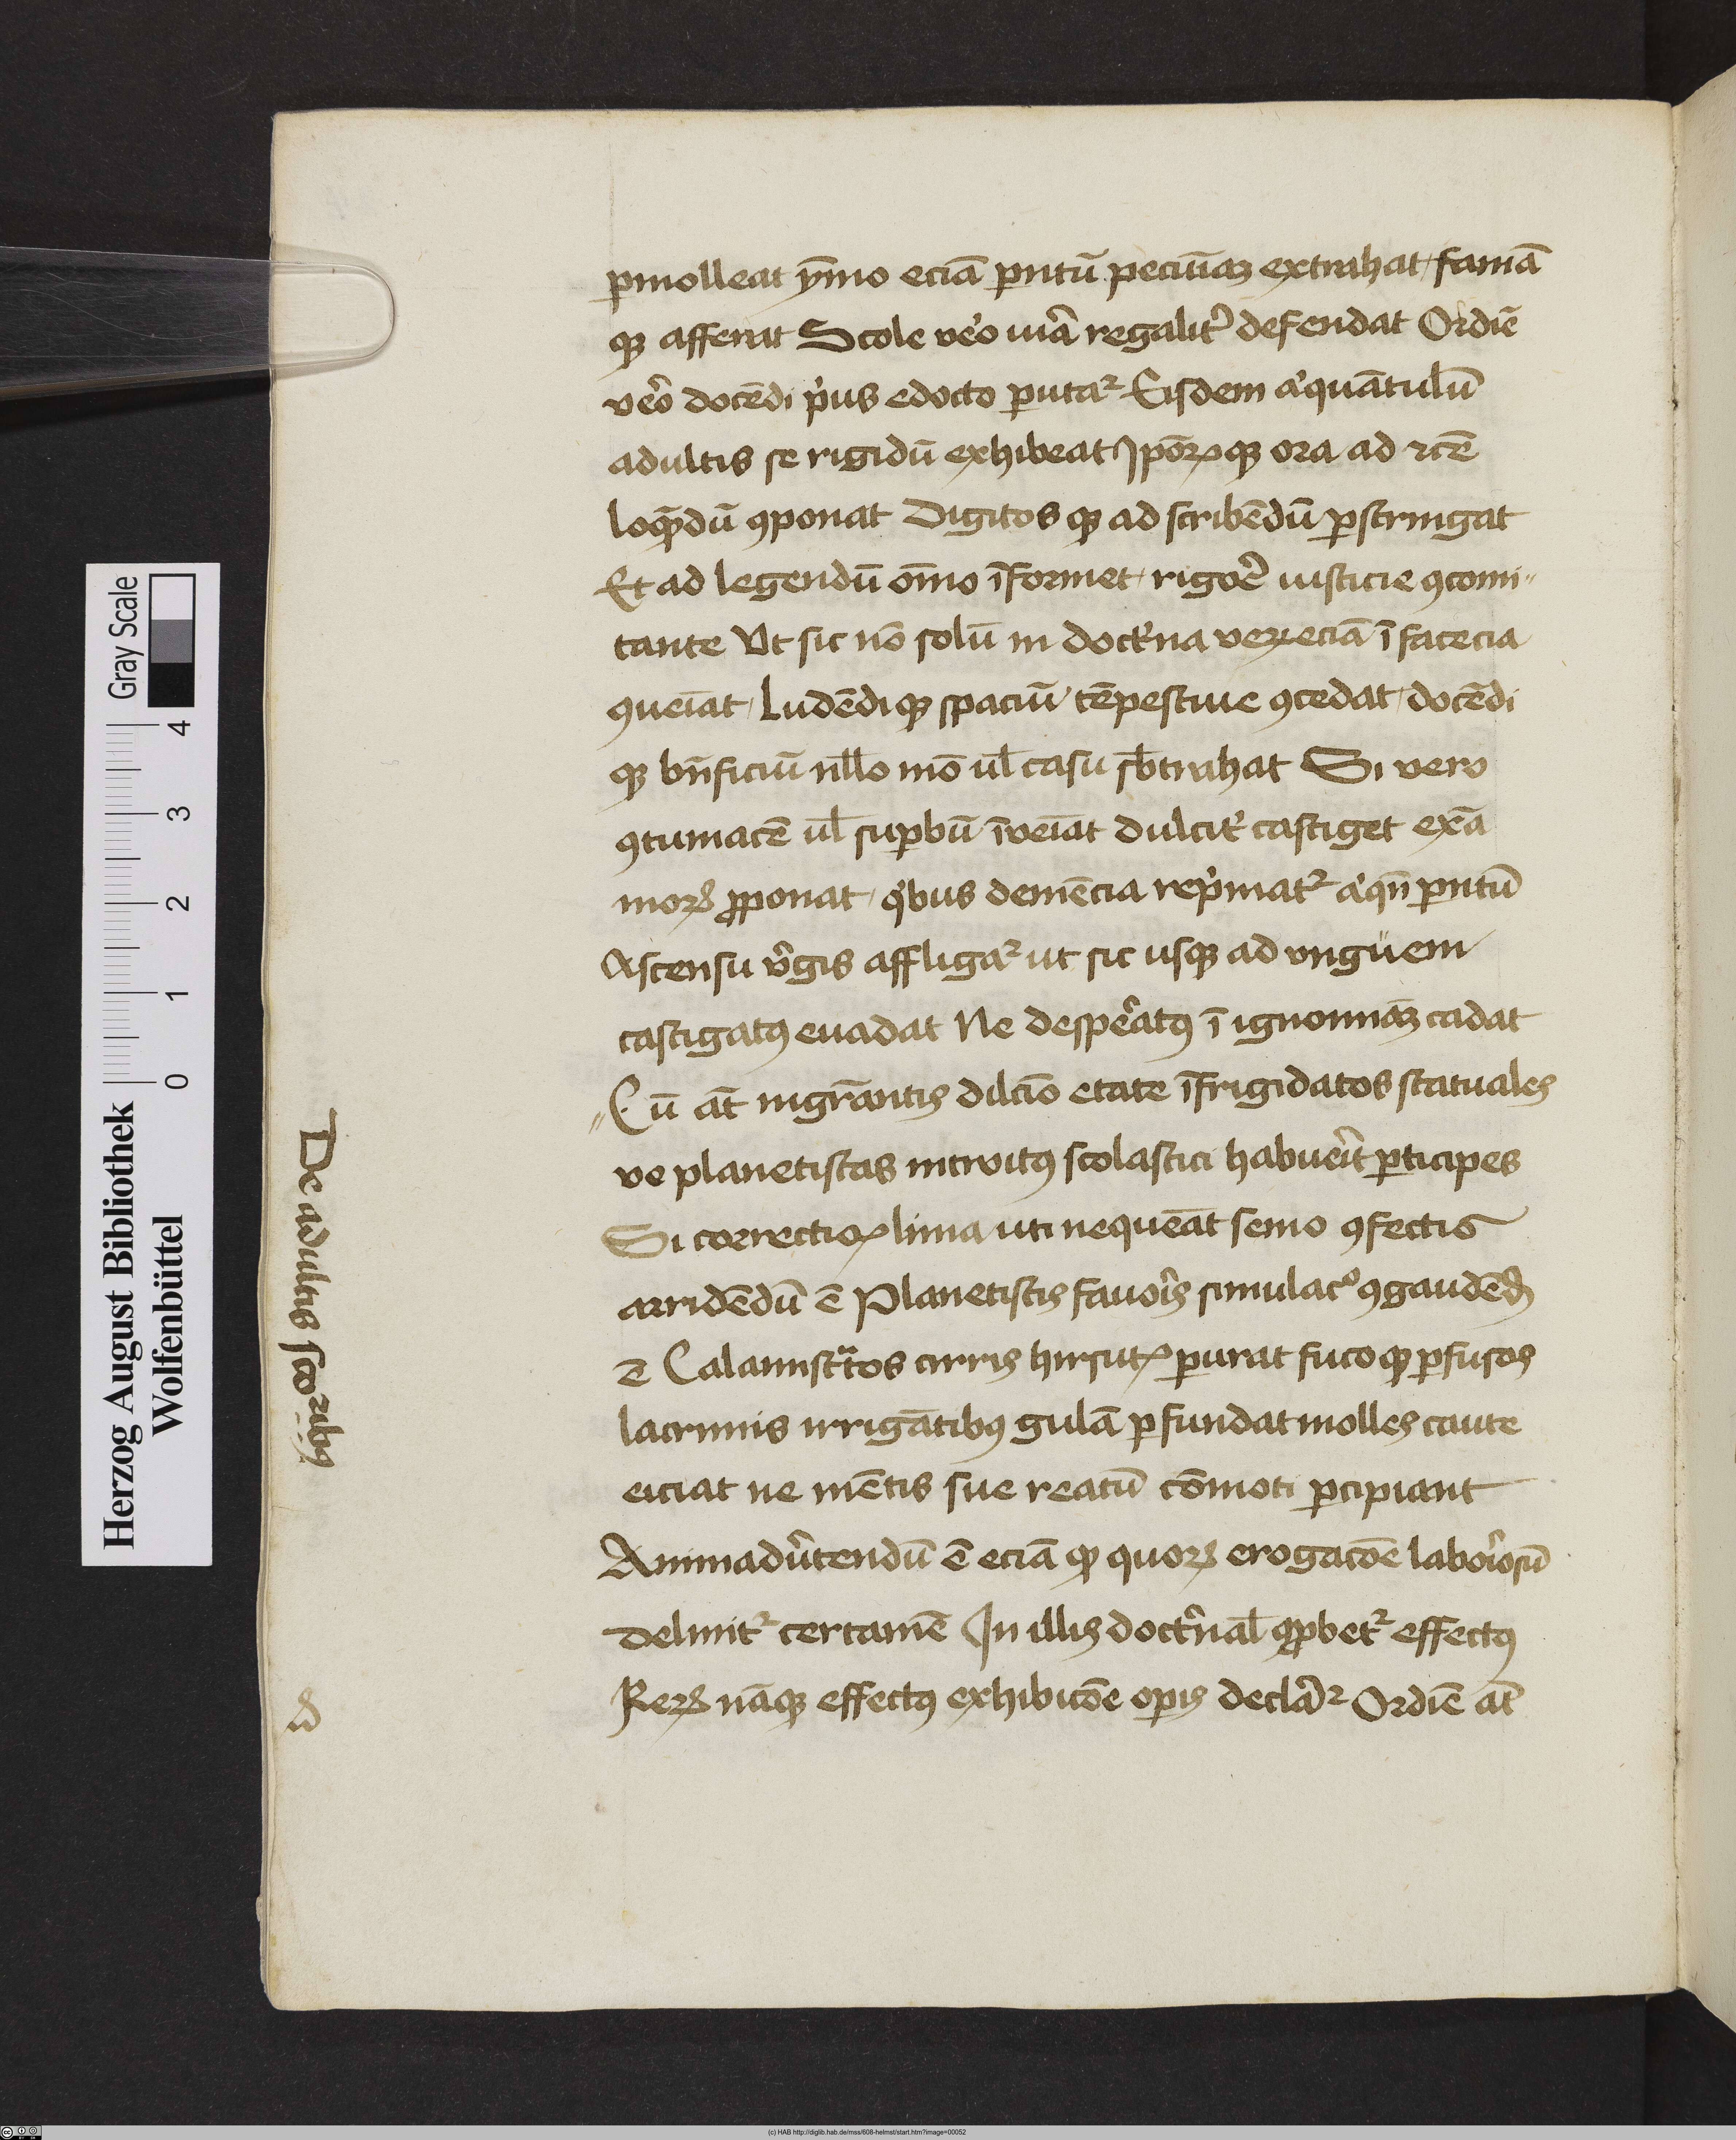 pmolleat ȳmo eciā pntū pecūiaꝫ extrahat famā
qꝫ afferat Scole veo viā regalit᷑ defendat Ordiē
veo docēdi pius edocto putaꝛ Eisdem aiquātulū
adultis se rigidū exhibeat Ipoꝝ qꝫ ora ad rcē
loqndū ꝯponat Digitos qꝫ ad scribēdū pstringat
Et ad legendū om̄o īformet rigoē iusticie ꝯcomi⸗
tante Vt sic nō solū in docti̇na veꝝ eciā ī facecia
ꝯueīat Ludēdi qꝫ spaciū tēpestiue ꝯcedat docēdi
qꝫ bn̄ficiū nll̄o mō ul̄ casu sb̄trahat Si vero
ꝯtumacē ul̄ supbū īveīat dulcit᷑ castiget exā
moꝝ ꝓponat qi̇bus demēcia repi̇mat᷑ aiqn̄ pntū
Ascensu vi̇gis affligaꝛ ut sic usqꝫ ad vngüem
castigatꝰ euadat Ne despeatꝰ ī ignominiāꝫ cadat
Cū āt migrāntis dilcīo etate īfrigidatos statuales
ve planetistas introitꝰ scolastici habueīt pticipes
Si correctioꝝ lima uti nequeāt semo ꝯfectis
arridēdū ē Planetistis fauoīs simulacō ꝯgaudēdꝫ
ē Calamistātos cirris hirsutꝝ purat fuco qꝫ pfusos
lacrimis irrigātibꝰ gulā pfundat molles caute
eiciat ne mētis sue reatū cōmoti pcipiant
Animadv̄tendū ē eciā ꝙ quoꝝ erogacōē laboi̇osū
delinit᷑ certamē In illis doct̄nal̄ ꝓbet᷑ effectꝰ
Reꝝ nāqꝫ effectꝰ exhibicōē opis declāꝛ Ordiē āt
De adultis scoribꝰ
Herzog August Bibliothek
Wolfenbüttel
Gray Scale
0 1 2 3 4
(c) HAB http://diglib.hab.de/mss/608-helmst/start.htm?image=00052